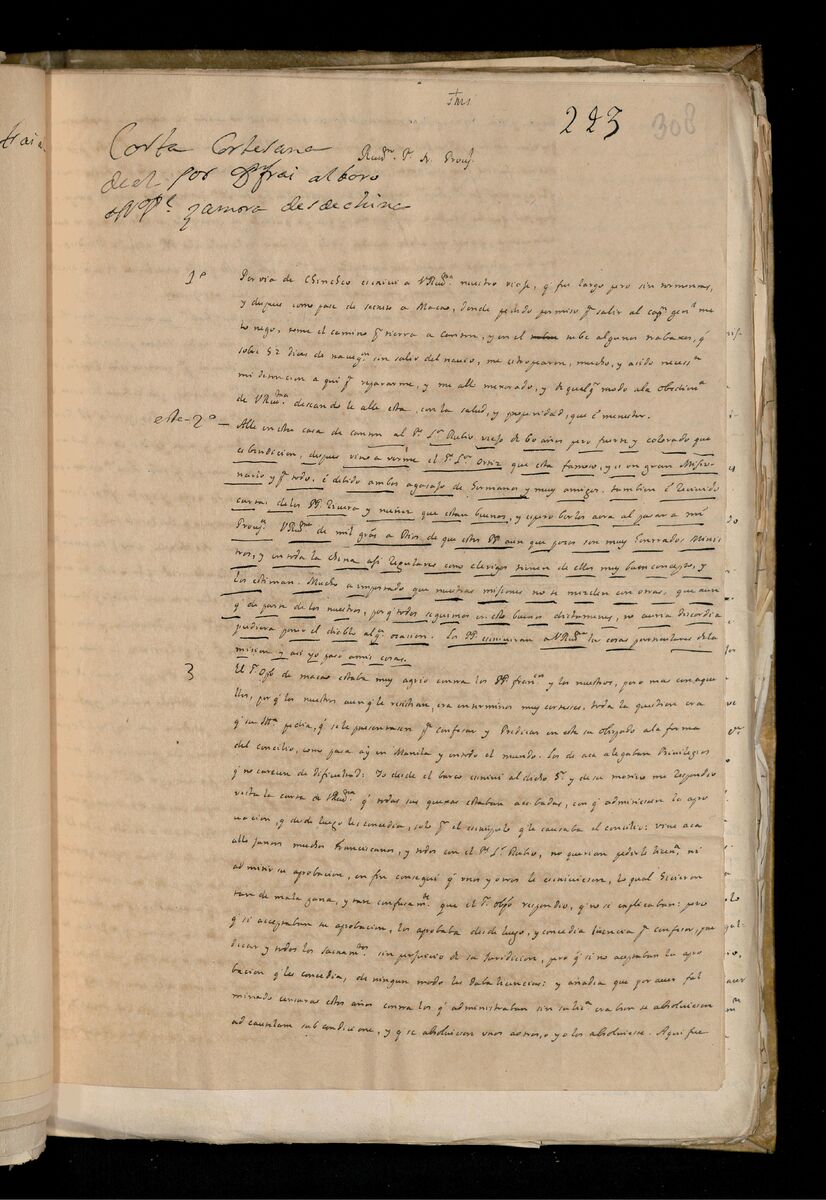 Jhs
223
308
Carta Cortesana
de el Pe frai albaro
zamora desde china
Rmo. P. N. Prouj.
1º Por via de Chincheo escriui a VRma nuestro viaje, q fue largo pero sin tormentas,
y despues como pase de secreto a Macao, donde pedido permiso pa salir al capn genl me
lo nego, tome el camino pr tierra a Canton, y en el tube algunos trabaxos, q
sobre 52 dias de nauegon sin salir del nauio, me estropearon, mucho, y a sido necesso
mi detencion a qui pa repararme, y me alle mexorado, y de qualq modo ala obediena
de VRma deseando le alle esta, con la salud, y prosperidad, que é menester.
este-2º — Alle en esta casa de Canton al Pe Lr Rubio, viejo de 60 años pero fuerte y colorado que
es bendicion, despues vino a verme el Pe Lr Ortiz que esta famoso, y es un gran Misio-
nario y pa todo, é debido ambos agasajo de hermanos y muy amigos. tambien é Reciuido
cartas de los PP. Riuera y nuñez que estan buenos, y espero berlos aora al pasar a mi
Prouja. VRma de mil gras a Dios de que estos PP aun que pocos son muy honrrados Minis
tros, y en toda la china asi regulares como clerigos tienen de ellos muy buen concepto, y
los estiman. Mucho a importado que nuestras misiones no se mezclen con otras, que aun
q de parte de los nuestros, porq todos seguimos en esto buenos dictamenes, no auria discordia
pudiera poner el diablo algª ocasion. Los PP. escriuiran a VRma las cosas particulares de la
mision y asi yo paso amis cosas.
3 El Sr Obpo de macao estaba muy agrio contra los PP. francos y los nuestros, pero mas con aque
llos, porq los nuestros aunq le resistian, era en terminos muy corteses. toda la question era
q su Illma pedia, q se le presentasen pa confesar y Predicar en este su Obispado ala forma
del Concilio, como pasa ay en Manila y en todo el mundo. los de aca alegaban Priuilegios
q no carecen de dificultad: Yo desde el barco escriui al dicho Sr y de su motiuo me Respondio
vista la carta de VRma q todas sus quexas estaban acabadas, con q admitiesen la apro
uacion, q desde luego les concedia, solo pr el escrupulo q le causaba el concilio: vine aca
alle juntos muchos Franciscanos, y todos con el Pe Lr Rubio, no querian pedirle licena, ni
admitir su aprobacion, en fin consegui q unos y otros le escriuiesen, lo qual hicieron
tan de mala gana, y tan confusamte que el Sr obpo respondio, q no se explicaban: pero
q si aceptaban su aprobacion, los aprobaba desde luego, y concedia licencia pa confesar, pre
dicar y todos los sacramtos sin perjuicio de su Juridicion, pero q si no aceptaban la apro
bacion q les concedia, de ningun modo les daba licencias: y añadia que por auer ful
minado censuras estos años contra los q administraban sin su licª era bien se absoluiesen
ad cautelam sub condicione, y q se absoluiesen unos aotros, o yo los absoluiese. Aqui fue